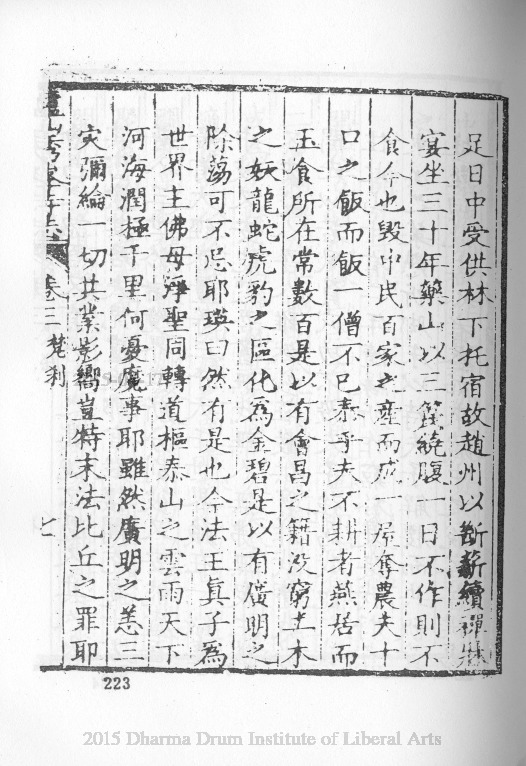 足日中受供林下托宿故趙州以斷薪續禪牀
宴坐三十年藥山以三篾繞腹一日不作則不
食今也毀中民百家之產而成一屋奪農夫十
口之飯而飯一僧不已泰乎夫不耕者燕居而
玉食所在常數百是以有會昌之籍沒窮土木
之妖龍蛇虎豹之區化為金碧是以有廣明之
除蕩可不忌耶瑛曰然有是也今法王真子為
世界主佛母淨聖同轉道樞泰山之雲雨天下
河海潤極千里何憂魔事耶雖然廣明之恙三
災彌綸一切共業影嚮豈特末法比丘之罪耶
卷三 梵剎
七
223
2015 Dharma Drum Institute of Liberal Arts